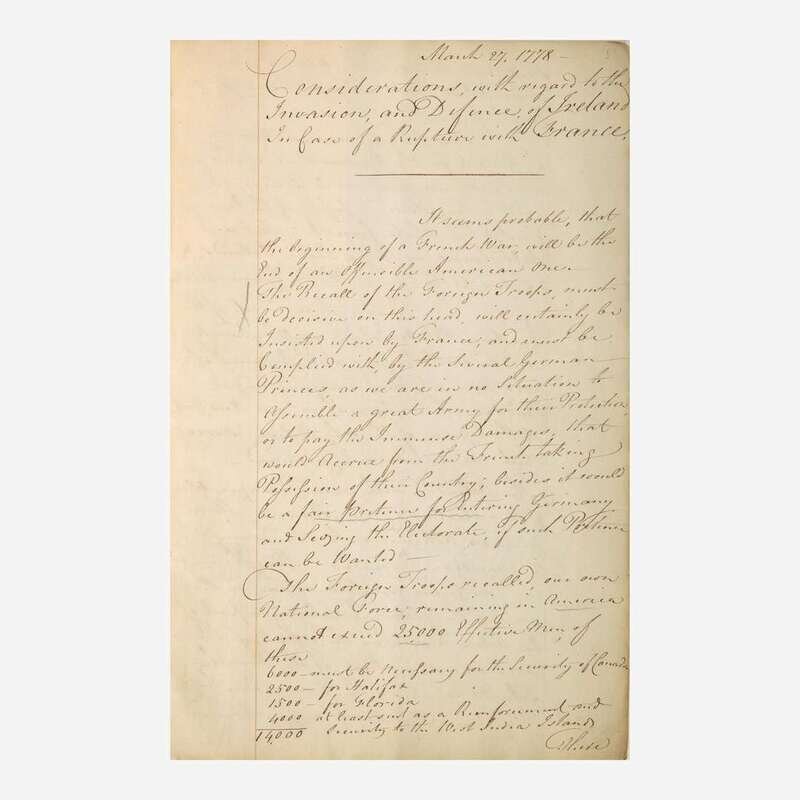 March 27, 1778 –
Considerations, with regard to the
Invasion, and Defence, of Ireland
In Case of a Rupture with France.
It seems probable, that
the beginning of a French War, will be the
End of an Offensible American One –
The Recall of the Foreign Troops, must
be decisive on this head, will certainly be
Insisted upon by France, and must be
Complied with, by the Several German
Princes, as we are in no Situation to
Assemble a great Army for their Protection
or to pay the Immense Damages, that
would Accrue from the French taking
Possession of their Country; besides it would
be a fair Pretence for Entering Germany
and Seizing the Electorate, if such Pretence
can be Wanted –
The Foreign Troops recalled, our own
National Force, remaining in America
cannot exceed 25000 Effective Men, of
these
6000 – must be Necessary for the Security of Canada
2500 – for Halifax
1500 – for Florida
4000 at least sent as a Reinforcement and
14,000 Security to the West India Islands
These